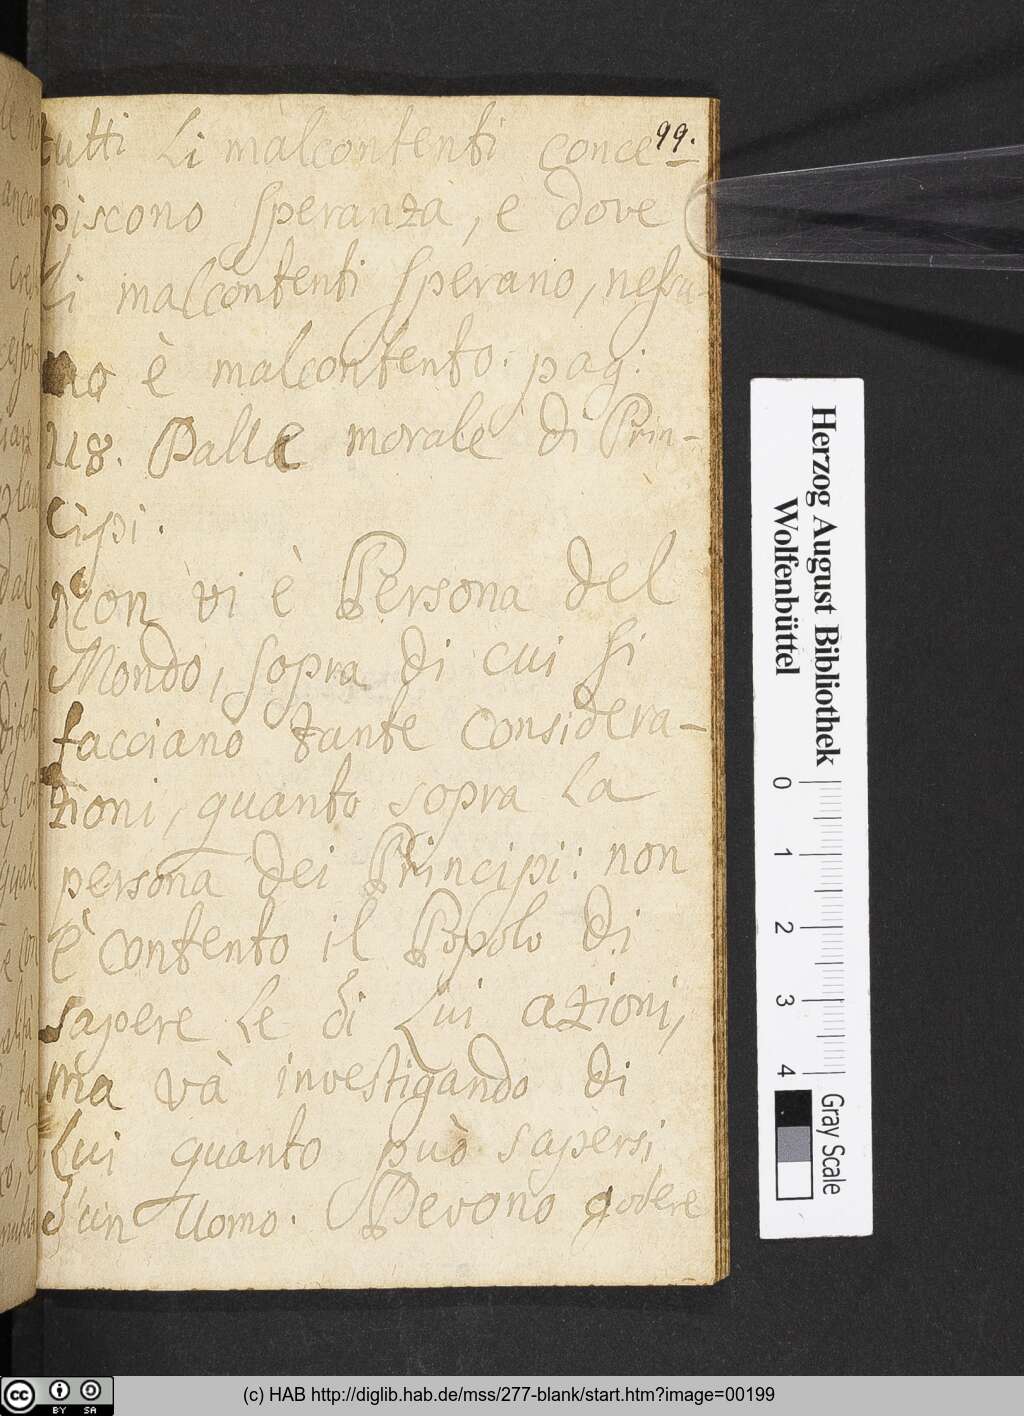 99.
tutti li malcontenti conce-
piscono speranza, e dove
li malcontenti sperano, nessu-
no è malcontento. pag:
118. Dalla morale di Prin-
cipi.
Non vi è Persona del
Mondo, sopra di cui si
facciano tante considera-
zioni, quanto sopra la
persona dei Principi: non
è contento il Popolo di
sapere le di lui azioni,
ma và investigando di
lui quanto può sapersi
d'un Uomo. Devono godere
Herzog August Bibliothek
Wolfenbüttel
0 1 2 3 4
Gray Scale
cc BY SA
(c) HAB http://diglib.hab.de/mss/277-blank/start.htm?image=00199